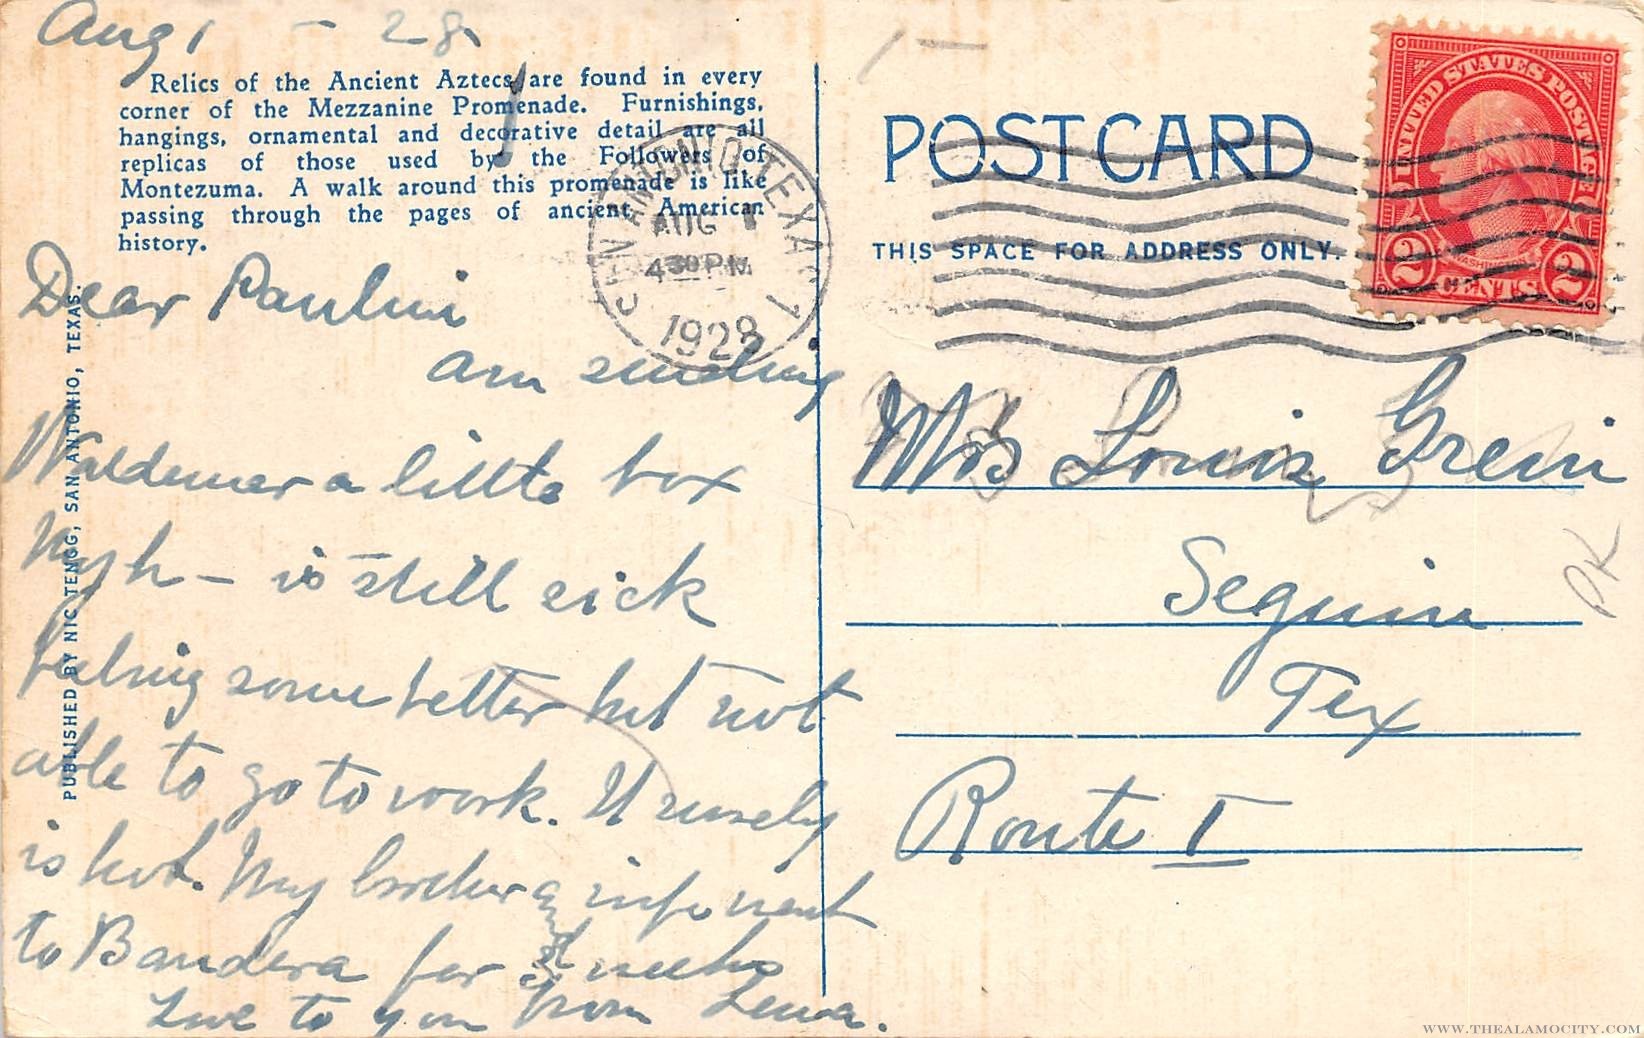 Aug 1 - 28
Relics of the Ancient Aztecs are found in every
corner of the Mezzanine Promenade. Furnishings,
hangings, ornamental and decorative detail are all
replicas of those used by the Followers of
Montezuma. A walk around this promenade is like
passing through the pages of ancient American
history.
Dear Paulini
am sending
Waldemar a little box
Myh - is still sick
feeling some better but not
able to go to work. It surely
is hot. My brother and wife went
to Bandera for weeks
Love to you from Lewa.
PUBLISHED BY NIC TENGG, SAN ANTONIO, TEXAS.
SAN ANTONIO, TEXAS
AUG 1
4 30 PM
1928
1 -
POST CARD
THIS SPACE FOR ADDRESS ONLY.
UNITED STATES POSTAGE
WASHINGTON
2 CENTS 2
Mrs Louis Grein
Seguin
Tex
Route 1
PK
WWW.THEALAMOCITY.COM